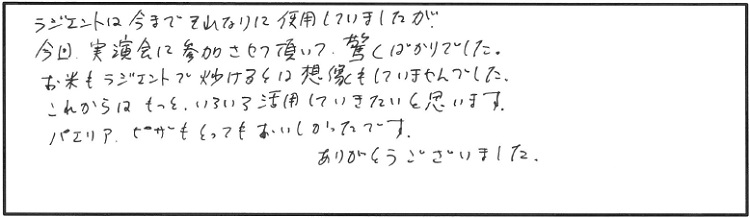 ラジエントは今までそれなりに使用していましたが
今回、実演会に参加させて頂いて、驚くばかりでした。
お米もラジエントで炒けるとは想像もしていませんでした、
これからはもっと、いろいろ活用していきたいと思います。
パエリア、ピザもとってもおいしかったです。
ありがとうございました。